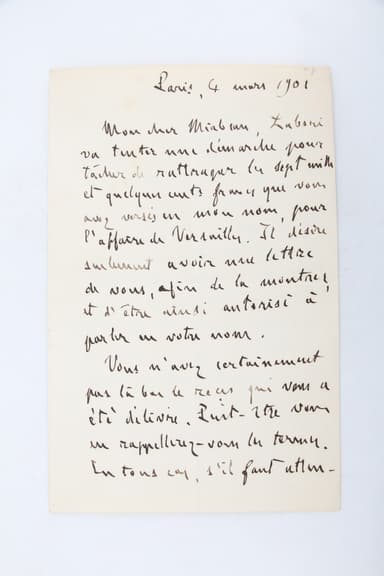 Paris, 4 mars 1901
Mon cher Mirbeau, Labori
va tenter une démarche pour
tâcher de rattraper les sept mille
et quelques cents francs que vous
avez versés en mon nom, pour
l'affaire de Versailles. Il désire
seulement avoir une lettre
de vous, afin de la montrer,
et d'être ainsi autorisé à
parler en votre nom.
Vous n'avez certainement
pas là bas le reçu qui vous a
été délivré. Peut-être vous
en rappellerez-vous les termes.
En tous cas, s'il faut atten-